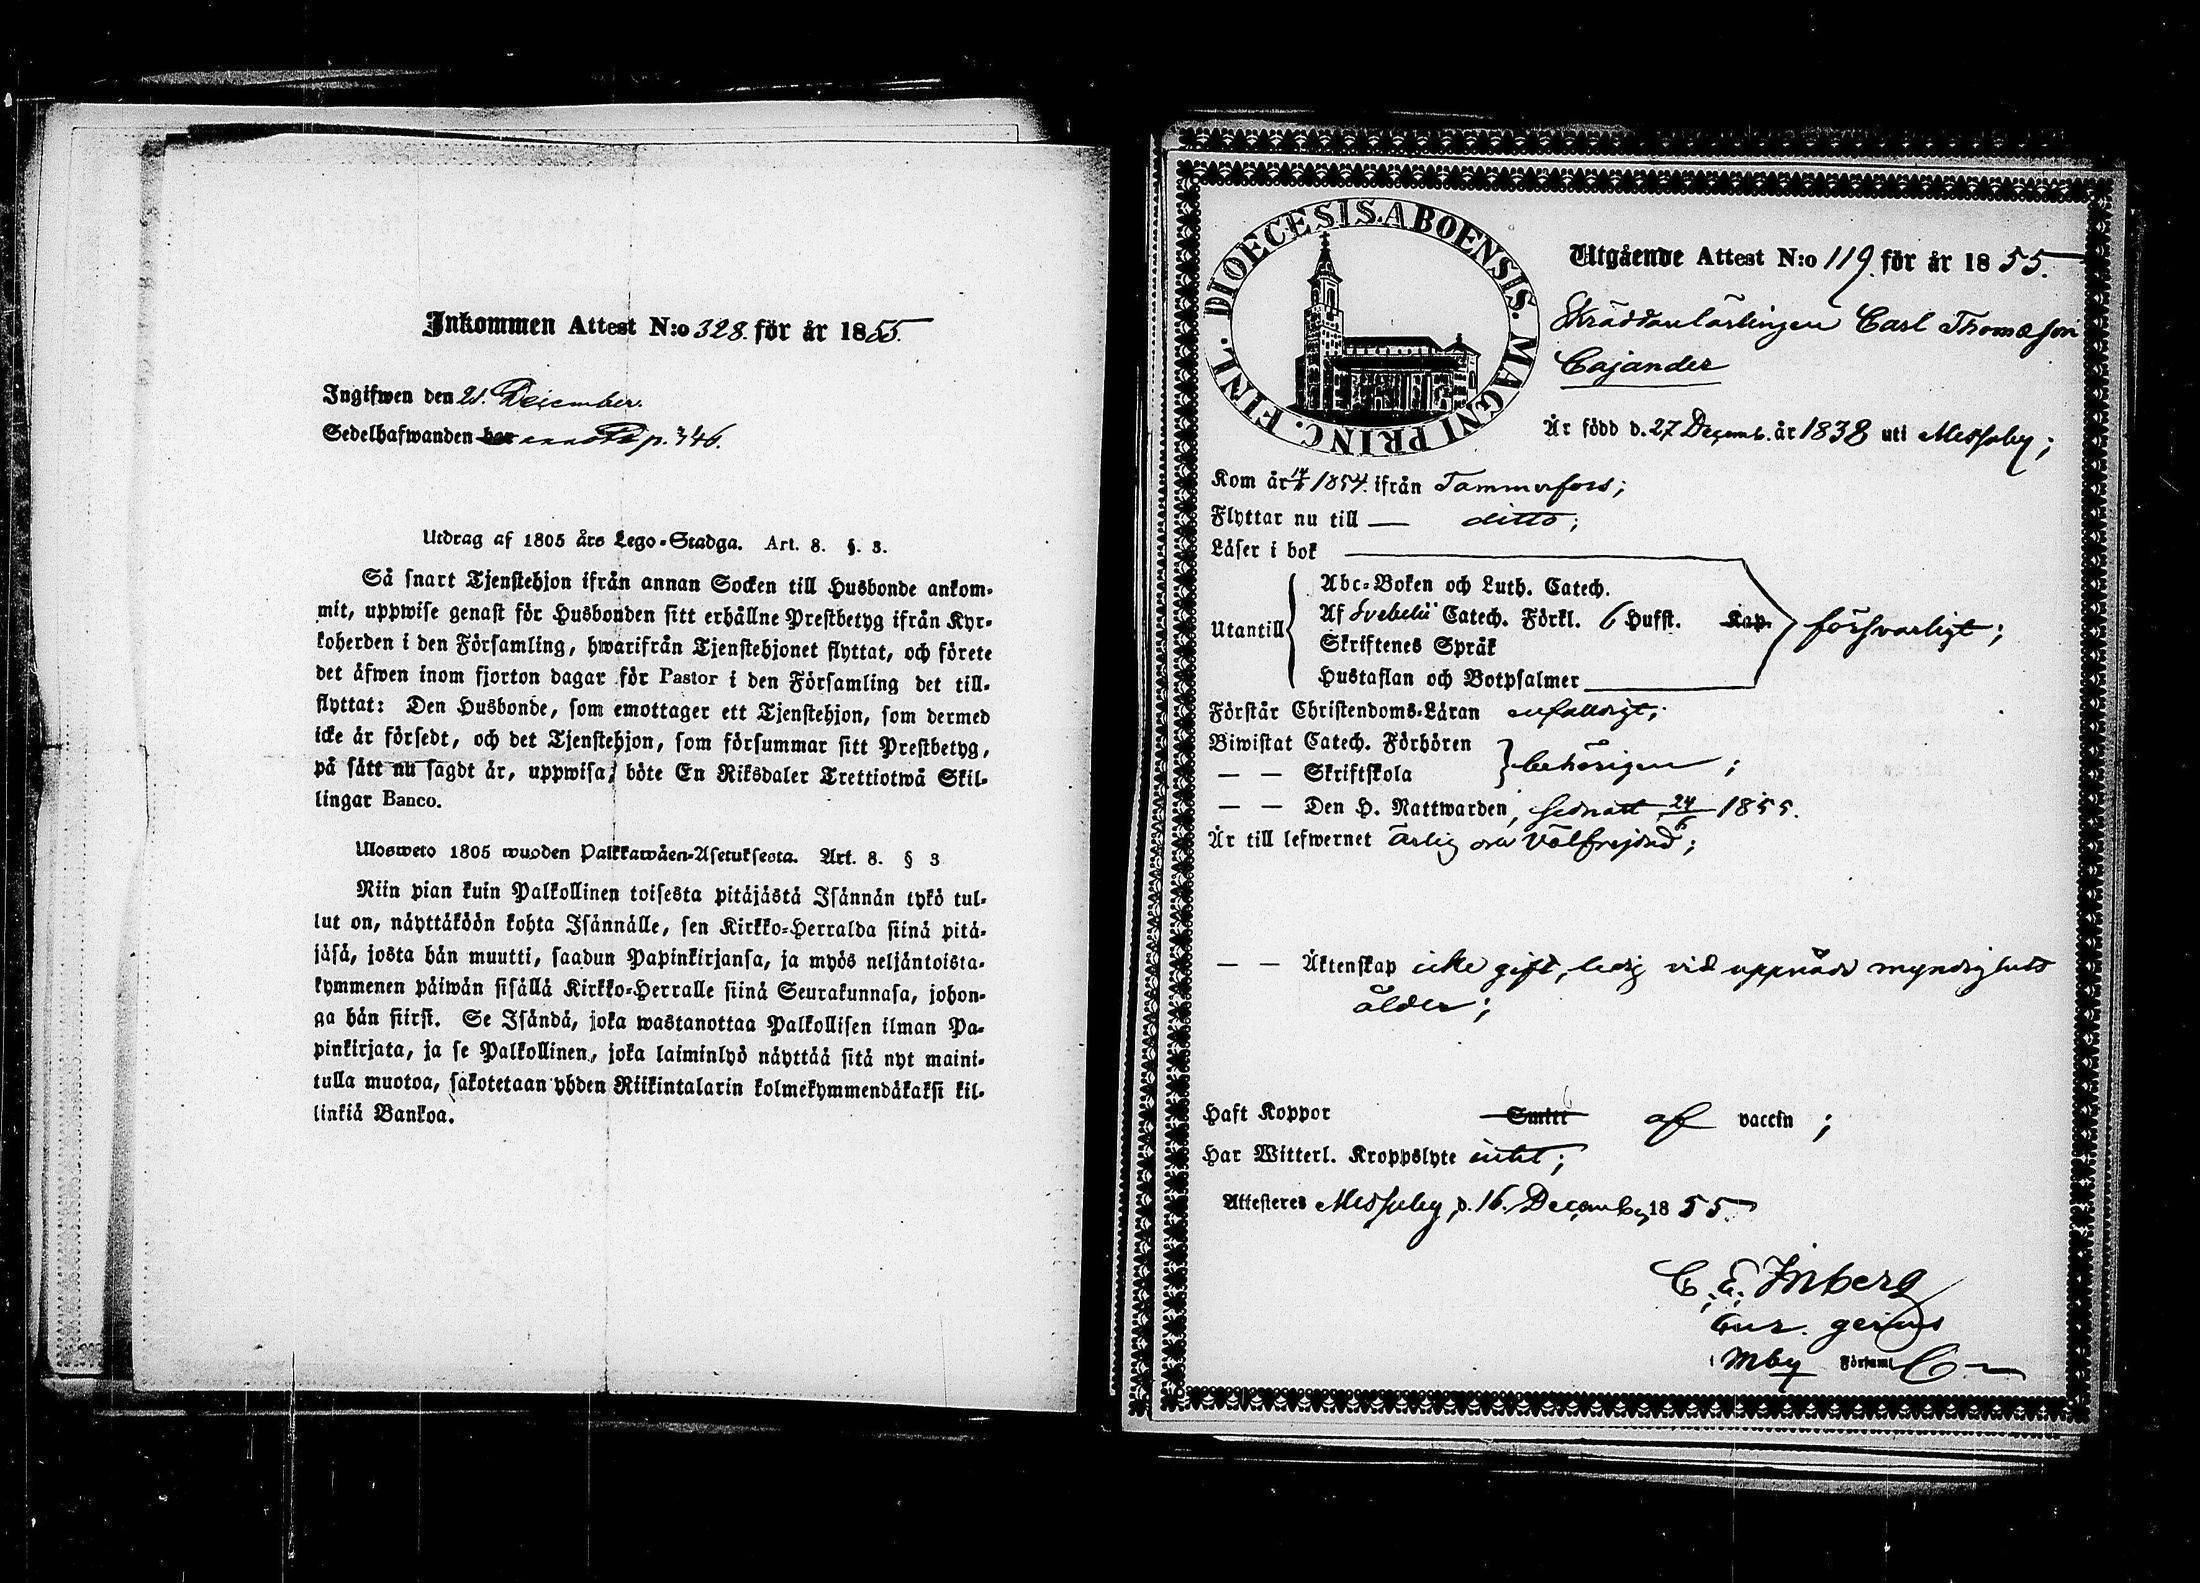 Inkommen Attest N:o 328. för år 1855.
Ingifwen den 21. December.
Sedelhafwanden har p. 346.
Utdrag af 1805 års Lego-Stadga. Art. 8. §. 3.
Så snart Tjenstehjon ifrån annan Socken till Husbonde ankom-
mit, uppwise genast för Husbonden sitt erhållne Prestbetyg ifrån Kyr-
koherden i den Församling, hwarifrån Tjenstehjonet flyttat, och förete
det äfwen inom fjorton dagar för Pastor i den Församling det till-
flyttat: Den Husbonde, som emottager ett Tjenstehjon, som dermed
icke är försedt, och det Tjenstehjon, som försummar sitt Prestbetyg,
på sätt nu sagdt är, uppwisa, böte En Riksdaler Trettiotwå Skil-
lingar Banco.
Ulosweto 1805 wuoden Palkkawäen-Asetuksesta. Art. 8. § 3
Niin pian kuin Palkollinen toisesta pitäjästä Isännän tykö tul-
lut on, näyttäköön kohta Isännälle, sen Kirkko-Herralda siinä pitä-
jäsä, josta hän muutti, saadun Papinkirjansa, ja myös neljäntoista-
kymmenen päiwän sisällä Kirkko-Herralle siinä Seurakunnasa, johon-
ga hän siirsi. Se Isändä, joka wastanottaa Palkollisen ilman Pa-
pinkirjata, ja se Palkollinen, joka laiminlyö näyttää sitä nyt maini-
tulla muotoa, sakotetaan yhden Riikintalarin kolmekymmendäkaksi kil-
linkiä Bankoa.
DIOECESIS. ABOENSIS. MAGNI PRINC. FINL.
Utgående Attest N:o 119. för år 1855.
Skräddarlärlingen Carl Thomasson
Cajander
Är född d. 27 Decemb. år 1838 uti Messuby;
Kom år 1854. ifrån Tammerfors;
Flyttar nu till — ditto;
Läser i bok
Abc-Boken och Luth. Catech.
Utantill Af Svebelii Catech. Förkl. 6 Hufst. Kap. försvarligt;
Skriftenes Språk
Hustaflan och Botpsalmer
Förstår Christendoms-Läran enfalldigt;
Biwistat Catech. Förhören
— — Skriftskola behörigen;
— — Den H. Nattwarden, sednast 24/6 1855.
Är till lefwernet ärlig och välfrejdad;
— — Äktenskap icke gift, ledig vid uppnådd myndighets
ålder;
Haft Koppor Smitt af vaccin;
Har Witterl. Kroppslyte intet;
Attesteres Messuby, d. 16. Decemb. 1855.
C. E. Inberg
Cur. gerens
i Mby Församl